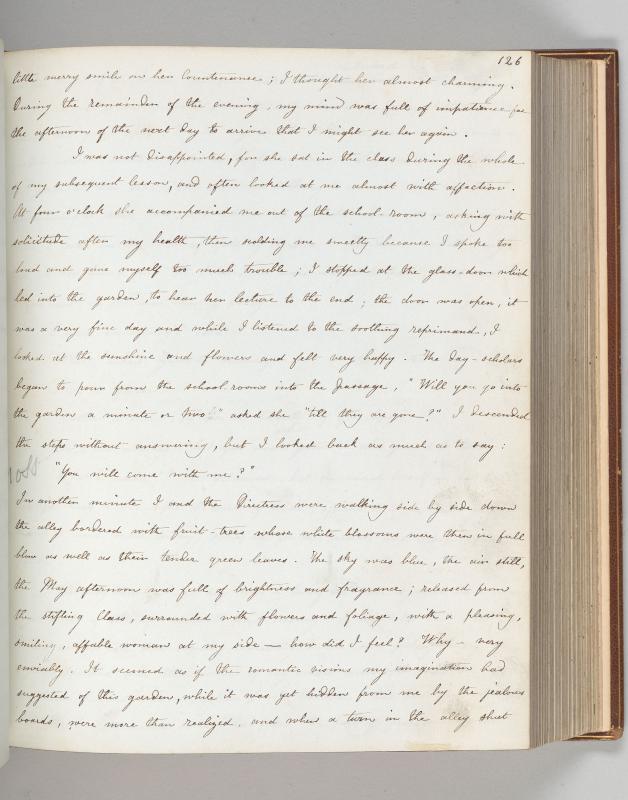 126
little merry smile on her Countenance ; I thought her almost charming .
During the remainder of the evening , my mind was full of impatience for
the afternoon of the next day to arrive that I might see her again .
I was not disappointed , for she sat in the class during the whole
of my subsequent lesson, and often looked at me almost with affection .
At four o'clock she accompanied me out of the school-room , asking with
solicitude after my health , then scolding me sweetly because I spoke too
loud and gave myself too much trouble ; I stopped at the glass-door which
led into the garden , to hear her lecture to the end ; the door was open , it
was a very fine day and while I listened to the soothing reprimand , I
looked at the sunshine and flowers and felt very happy . The day-scholars
began to pour from the school rooms into the passage , " Will you go into
the garden a minute or two " asked she " till they are gone ? " I descended
the steps without answering , but I looked back as much as to say :
" You will come with me ? "
In another minute I and the Directress were walking side by side down
the alley bordered with fruit-trees whose white blossoms were then in full
blow as well as their tender green leaves . The sky was blue , the air still ,
the May afternoon was full of brightness and fragrance ; released from
the stifling Class , surrounded with flowers and foliage , with a pleasing ,
smiling , affable woman at my side — how did I feel ? Why — very
enviably . It seemed as if the romantic visions my imagination had
suggested of this garden , while it was yet hidden from me by the jealous
boards , were more than realized . and when a turn in the alley shut